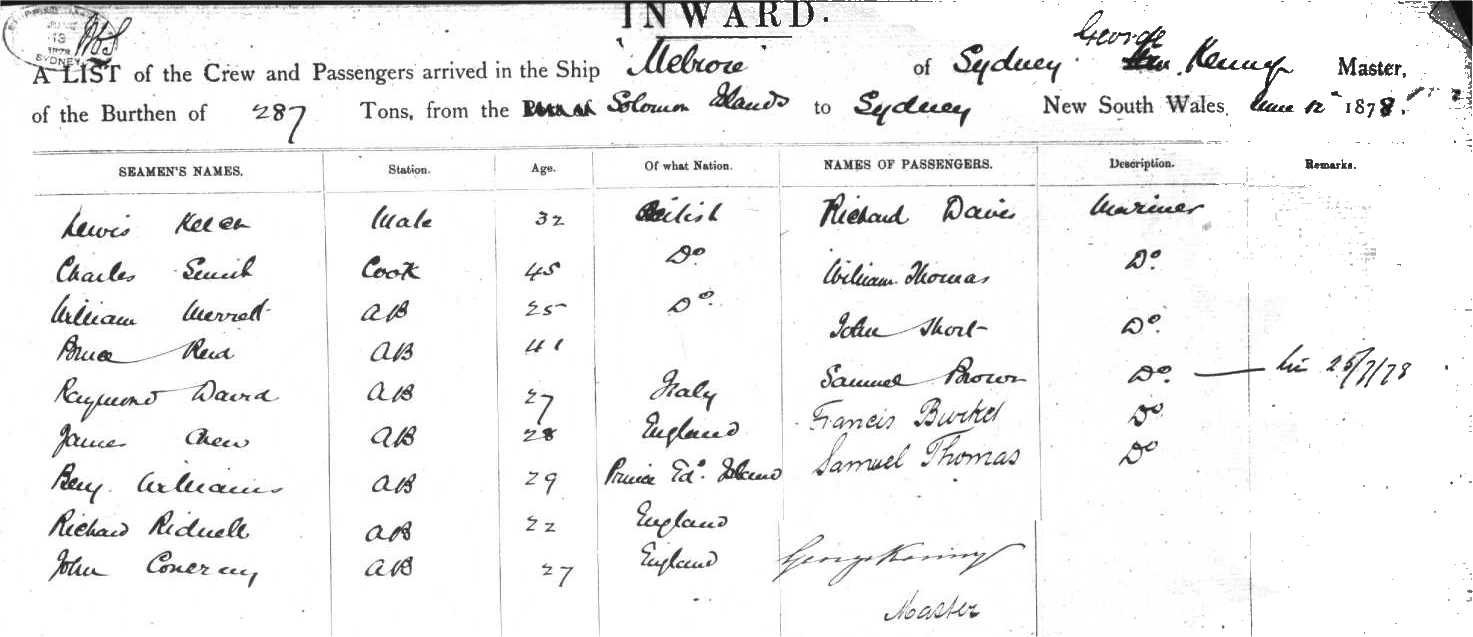 INWARD.
SYDNEY
A LIST of the Crew and Passengers arrived in the Ship 'Melrose' of Sydney George Kenny Master,
of the Burthen of 287 Tons, from the Solomon Islands to Sydney New South Wales, June 12 1878.
SEAMEN'S NAMES. Station. Age. Of what Nation. NAMES OF PASSENGERS. Description. Remarks.
Lewis Mate 32 British Richard Davies Mariner
Charles Smith Cook 45 Do William Thomas Do.
William Merrett AB 25 Do. John Short Do.
Reid AB 41 Samuel Brown Do. 25/7/78
Raymond David AB 27 Italy Francis Do
James AB 28 England Samuel Thomas Do
Benj. Williams AB 29 Prince Edd. Island
Richard AB 22 England
John AB 27 England George Kenny
Master